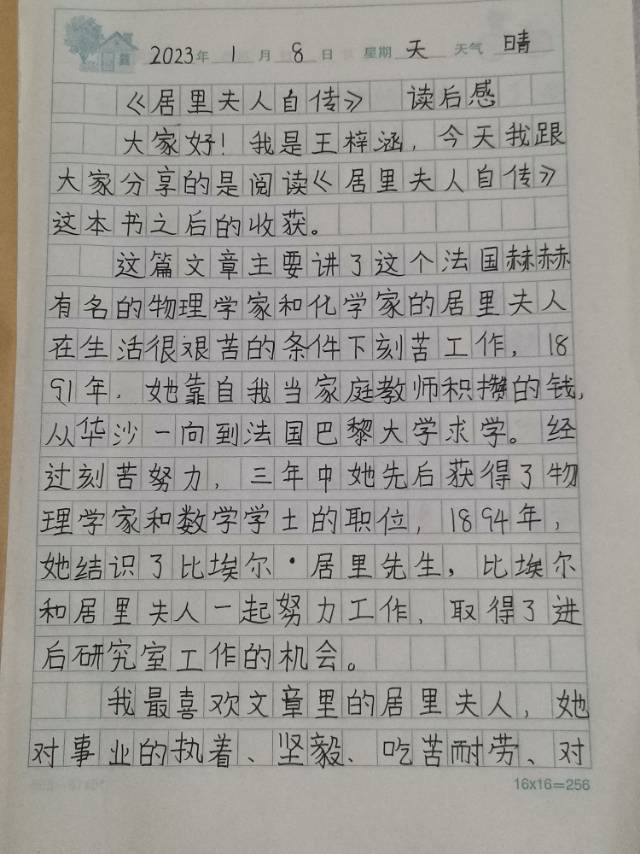 2023年 1月 8日 星期 天 天气 晴
《居里夫人自传》 读后感
大家好！我是王梓涵，今天我跟
大家分享的是阅读《居里夫人自传》
这本书之后的收获。
这篇文章主要讲了这个法国赫赫
有名的物理学家和化学家的居里夫人
在生活很艰苦的条件下刻苦工作，18
91年，她靠自我当家庭教师积攒的钱，
从华沙一向到法国巴黎大学求学。经
过刻苦努力，三年中她先后获得了物
理学家和数学学士的职位，1894年，
她结识了比埃尔·居里先生，比埃尔
和居里夫人一起努力工作，取得了进
后研究室工作的机会。
我最喜欢文章里的居里夫人，她
对事业的执着、坚毅、吃苦耐劳、对
16x16=256